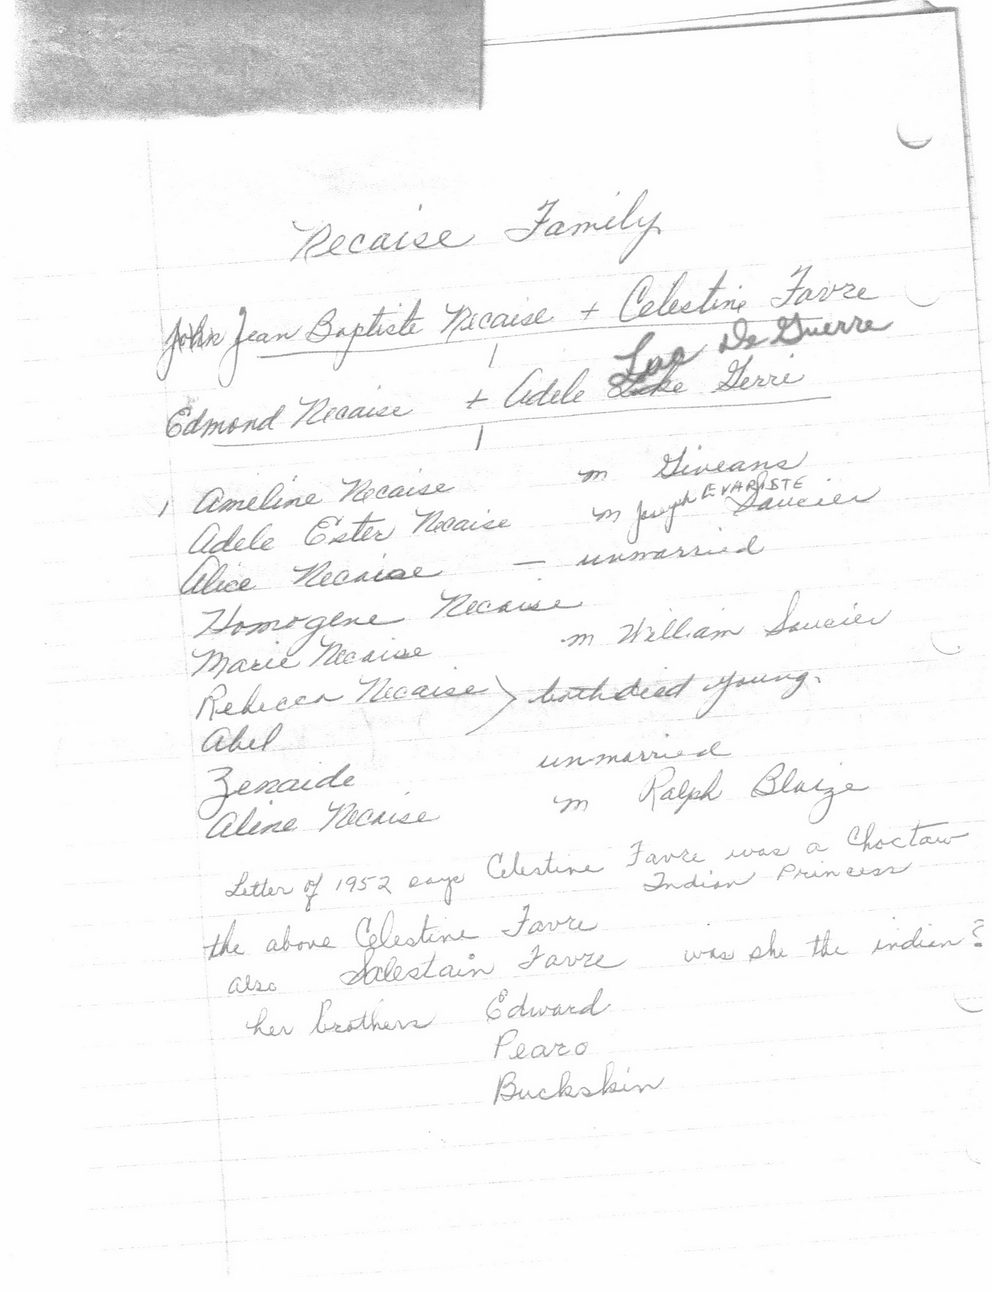 Necaise Family
John Jean Baptiste Necaise + Celestine Favre
Luc De Guerre
Edmond Necaise + Adele Luke Gerri
1 Ameline Necaise m Giveans
Adele Ester Necaise m Joseph EVARISTE Saucier
Alice Necaise — unmarried
Homogene Necaise
Marie Necaise m William Saucier
Rebecca Necaise > both died young.
Abel
Zenaide unmarried
Aline Necaise m Ralph Blaize
Letter of 1952 says Celestine Favre was a Choctaw
Indian Princess
the above Celestine Favre
also Salestain Favre was she the indian?
her brothers Edward
Pearo
Buckskin